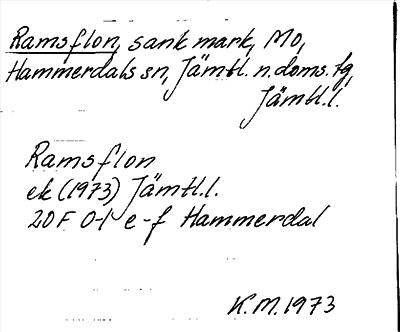 Ramsflon, sank mark, Mo,
Hammerdals sn, Jämtl. n. doms. tg,
Jämtl.l.
Ramsflon
ek (1973) Jämtl.l.
20F 0-1 e-f Hammerdal
K.M. 1973